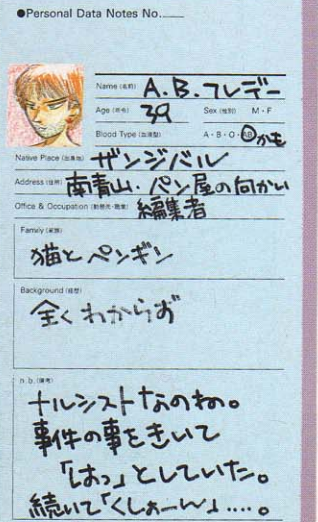 ●Personal Data Notes No.
Name (名前) A.B.フレデー
Age (年令) 39 Sex (性別) M・F
Blood Type (血液型) A・B・O・ABかも
Native Place (出身地) ザンジバル
Address (住所) 南青山・パン屋の向かい
Office & Occupation (勤務先・職業) 編集者
Family (家族)
猫とペンギン
Background (経歴)
全くわからず
n.b. (備考)
ナルシストなのね。
事件の事をきいて
「はっ」としていた。
続いて「くしゅーん」….。